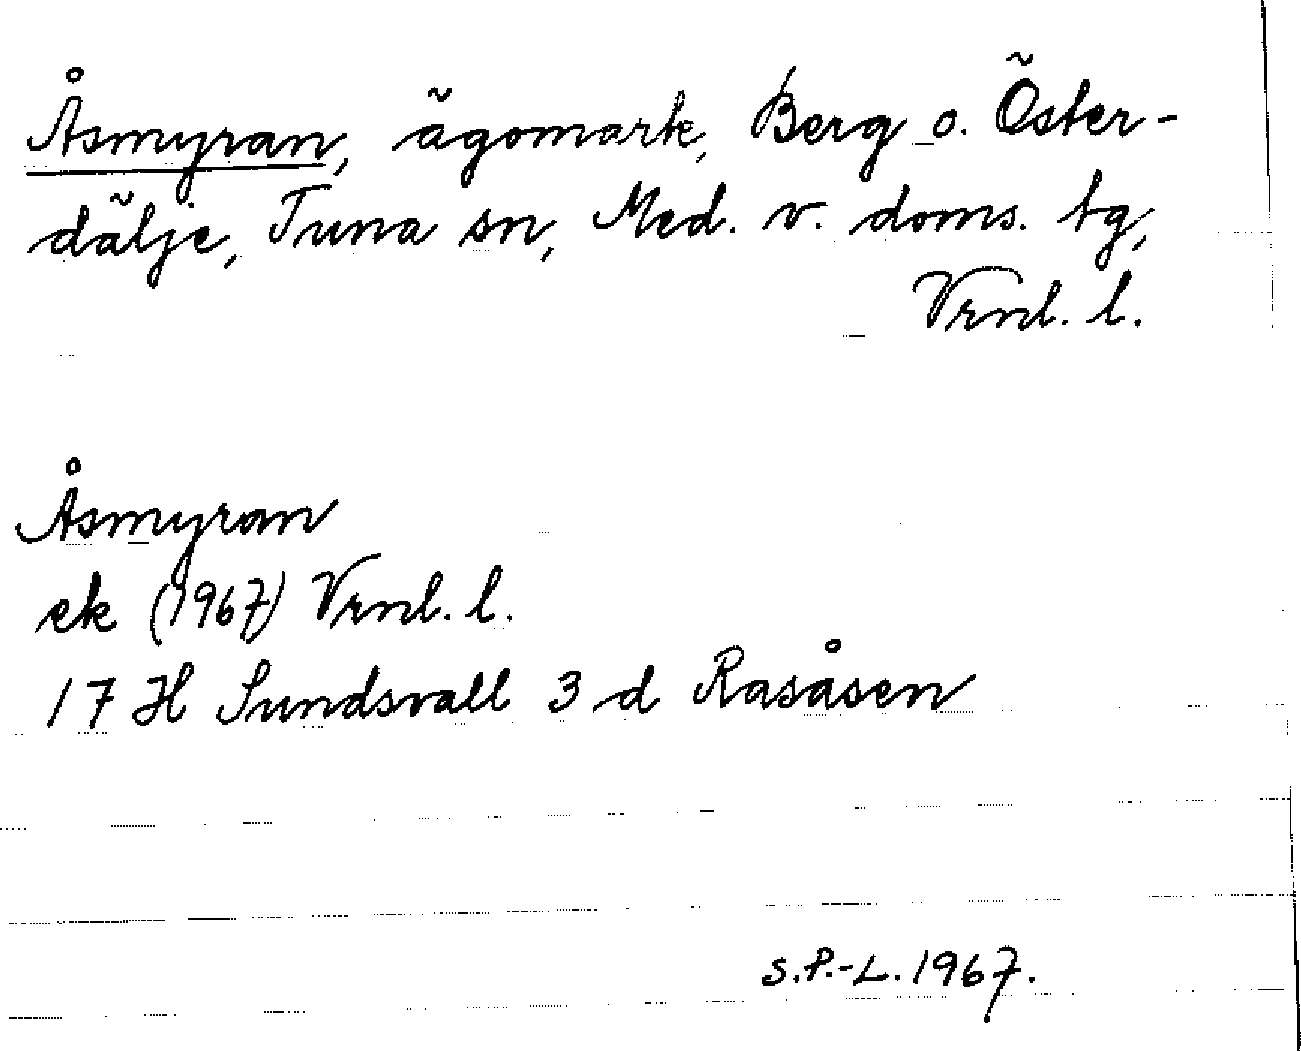 Åsmyran, ägomark, Berg o. Öster-
dälje, Tuna sn, Med. v. doms. tg,
Vrnl. l.
Åsmyran
ek (1967) Vrnl. l.
17 H Sundsvall 3 d Rasåsen
S.P.-L. 1967.